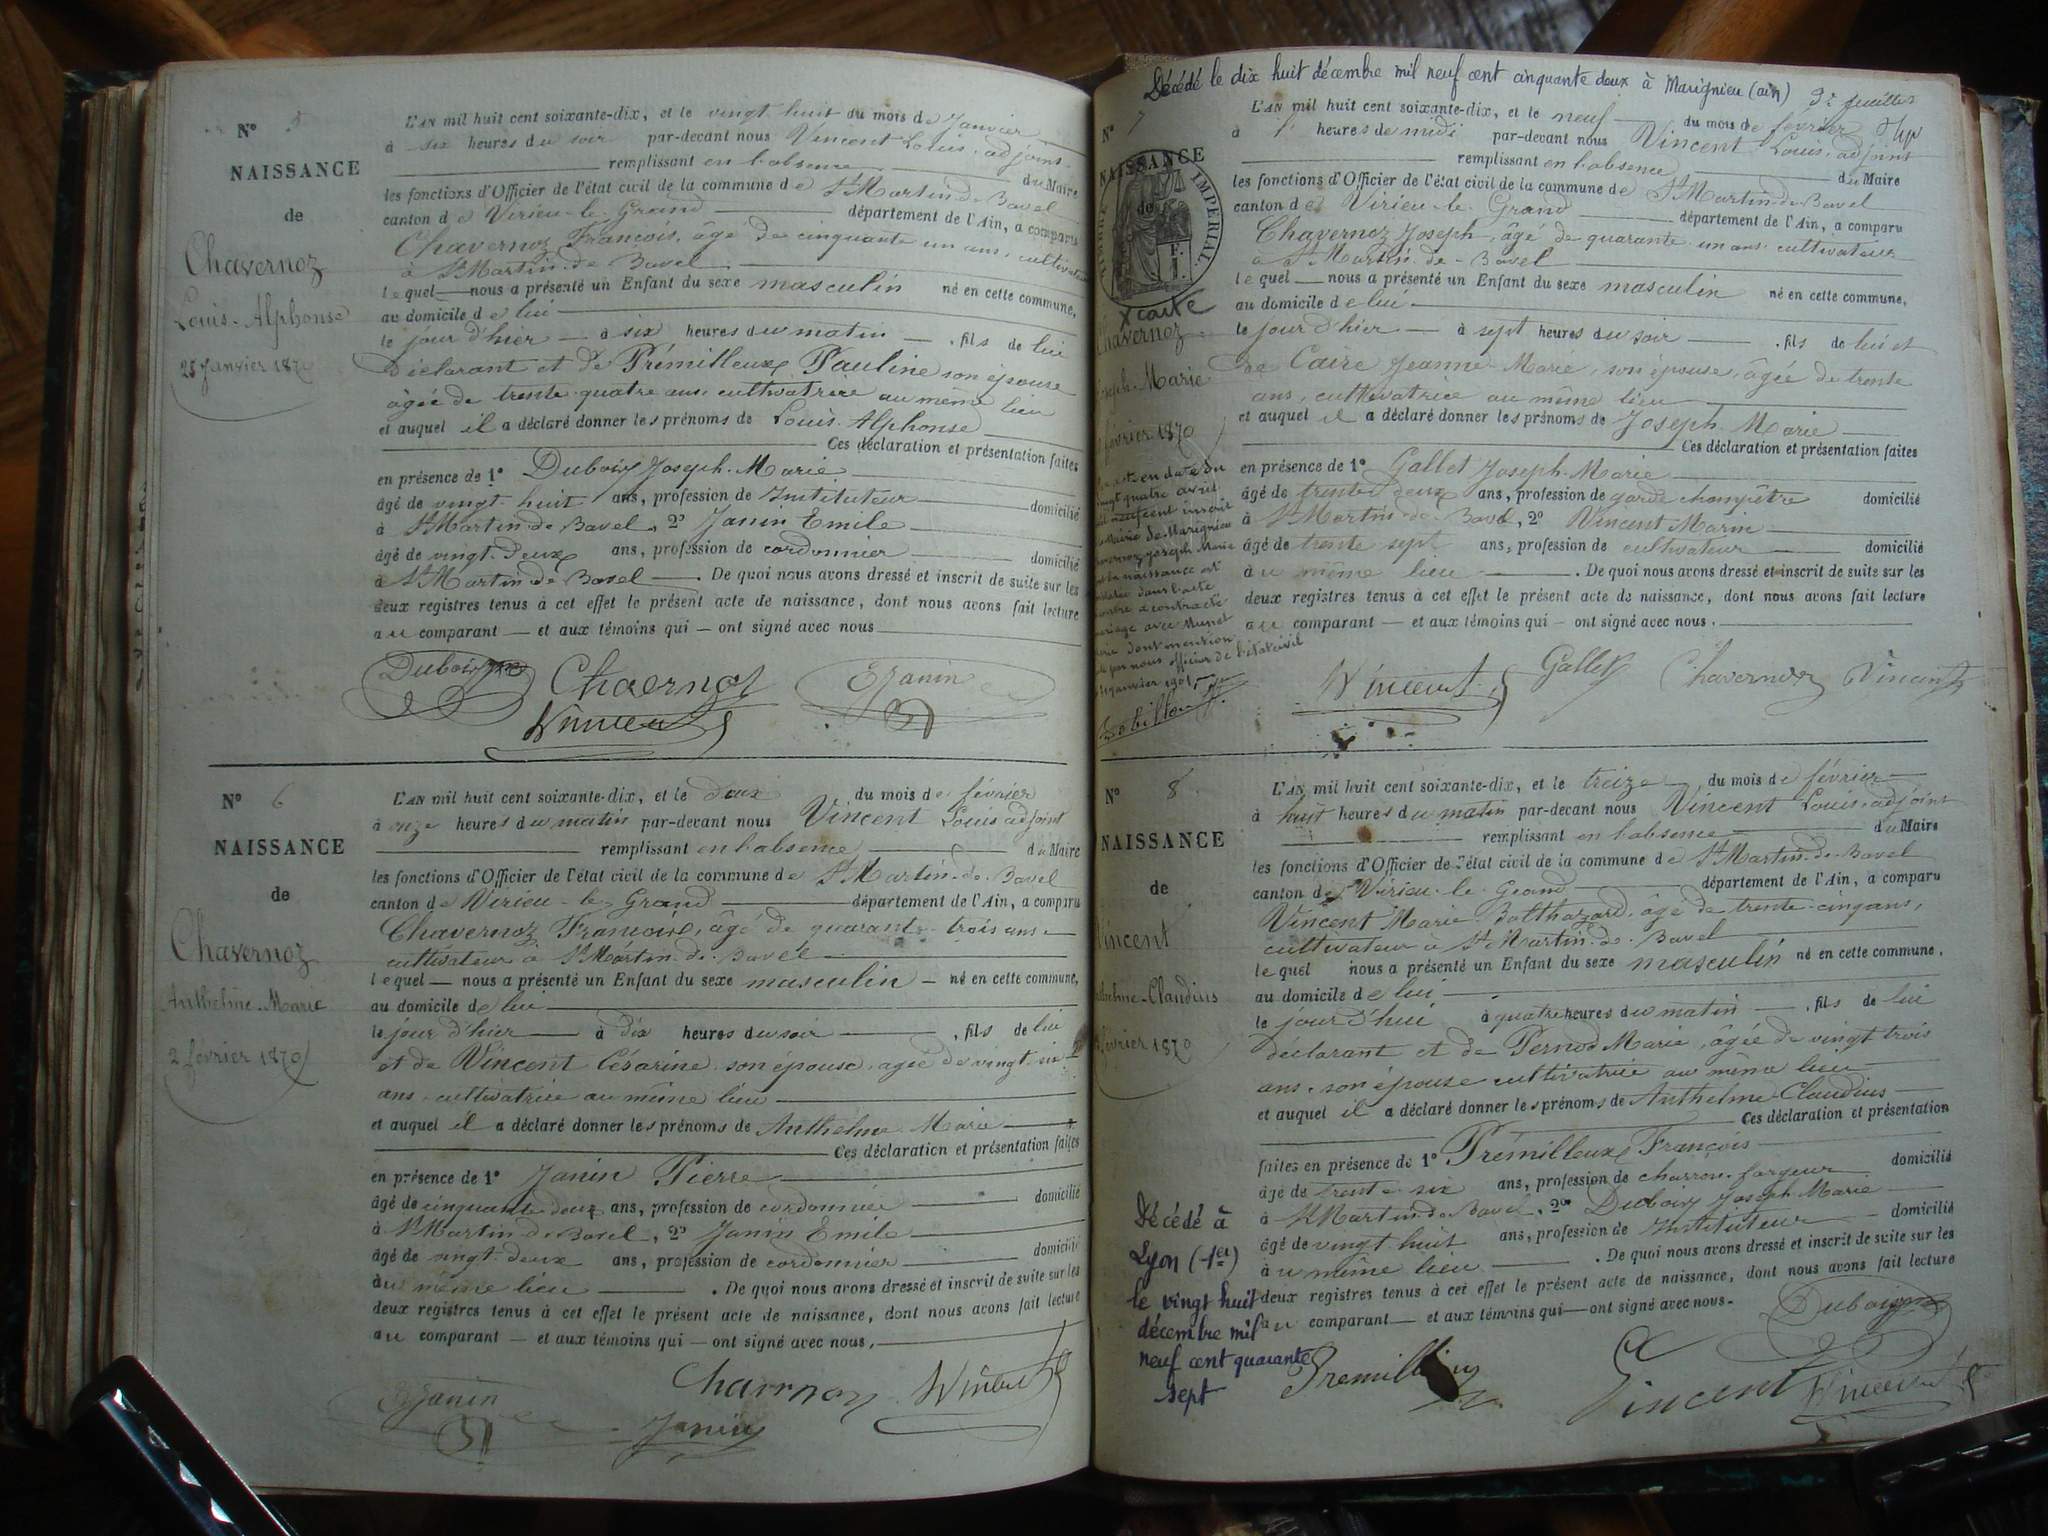 N° 5
NAISSANCE
de
Chavernoz
Louis-Alphonse
28 Janvier 1870
L'AN mil huit cent soixante-dix, et le vingt huit du mois de Janvier
à six heures du soir par-devant nous Vincent Louis, adjoint
remplissant en l'absence du Maire
les fonctions d'Officier de l'état civil de la commune de St Martin-de-Bavel
canton de Virieu-le-Grand département de l'Ain, a comparu
Chavernoz François, âgé de cinquante un ans, cultivateur
à St Martin-de-Bavel
lequel nous a présenté un Enfant du sexe masculin né en cette commune,
au domicile de lui
le jour d'hier à six heures du matin, fils de lui
Déclarant et de Prémilleux Pauline son épouse
âgée de trente-quatre ans cultivatrice au même lieu
et auquel il a déclaré donner les prénoms de Louis Alphonse
Ces déclaration et présentation faites
en présence de 1° Duboix Joseph-Marie
âgé de vingt huit ans, profession de Instituteur domicilié
à St Martin-de-Bavel, 2° Janin Emile
âgé de vingt-deux ans, profession de cordonnier domicilié
à St Martin de Bavel. De quoi nous avons dressé et inscrit de suite sur les
deux registres tenus à cet effet le présent acte de naissance, dont nous avons fait lecture
au comparant et aux témoins qui ont signé avec nous
Chaernoz
EJanin
Vincent
N° 6
NAISSANCE
de
Chavernoz
Anthelme-Marie
2 février 1870
L'AN mil huit cent soixante-dix, et le deux du mois de février
à onze heures du matin par-devant nous Vincent Louis adjoint
remplissant en l'absence du Maire
les fonctions d'Officier de l'état civil de la commune de St Martin-de-Bavel
canton de Virieu-le-Grand département de l'Ain, a comparu
Chavernoz François, âgé de quarante-trois ans
cultivateur à St Martin-de-Bavel
lequel nous a présenté un Enfant du sexe masculin né en cette commune,
au domicile de lui
le jour d'hier à dix heures du soir, fils de lui
et de Vincent Césarine son épouse, agée de vingt-six
ans, cultivatrice au même lieu
et auquel il a déclaré donner les prénoms de Anthelme Marie
Ces déclaration et présentation faites
en présence de 1° Janin Pierre
âgé de cinquante deux ans, profession de cordonnier domicilié
à St Martin de Bavel, 2° Janin Emile
âgé de vingt-deux ans, profession de cordonnier domicilié
au même lieu. De quoi nous avons dressé et inscrit de suite sur les
deux registres tenus à cet effet le présent acte de naissance, dont nous avons fait lecture
au comparant et aux témoins qui ont signé avec nous,
EJanin
Janin
Vincent
Décédé le dix huit décembre mil neuf cent cinquante deux à Marignieu (ain)
N° 7
NAISSANCE
de
TIMBRE IMPERIAL
Chavernoz
Joseph-Marie
février 1870
L'AN mil huit cent soixante-dix, et le neuf du mois de février
à heures de midi par-devant nous Vincent Louis, adjoint
remplissant en l'absence du Maire
les fonctions d'Officier de l'état civil de la commune de St Martin-de-Bavel
canton de Virieu-le-Grand département de l'Ain, a comparu
Chavernoz Joseph, âgé de quarante-un ans cultivateur
à St Martin-de-Bavel
lequel nous a présenté un Enfant du sexe masculin né en cette commune,
au domicile de lui
le jour d'hier à sept heures du soir, fils de lui et
de Caire Jeanne-Marie, son épouse, âgée de trente
ans, cultivatrice au même lieu
et auquel il a déclaré donner les prénoms de Joseph-Marie
Ces déclaration et présentation faites
en présence de 1° Gallet Joseph-Marie
âgé de trente deux ans, profession de garde champêtre domicilié
à St Martin-de-Bavel, 2° Vincent Marin
âgé de trente sept ans, profession de cultivateur domicilié
au même lieu. De quoi nous avons dressé et inscrit de suite sur les
deux registres tenus à cet effet le présent acte de naissance, dont nous avons fait lecture
au comparant et aux témoins qui ont signé avec nous.
en date du
vingt quatre avril
inscrit
Mairie de Marignieu
Joseph Marie
la naissance est
dans l'acte
contracté
mariage avec
dont mention
par nous officier de l'état civil
janvier
Vincent
Gallet
Chavernoz
Vincent
N° 8
NAISSANCE
de
Vincent
Anthelme-Claudius
février 1870
L'AN mil huit cent soixante-dix, et le treize du mois de février
à huit heures du matin par-devant nous Vincent Louis, adjoint
remplissant en l'absence du Maire
les fonctions d'Officier de l'état civil de la commune de St Martin-de-Bavel
canton de Virieu-le-Grand département de l'Ain, a comparu
Vincent Marie Balthazard, âgé de trente-cinq ans,
cultivateur à St Martin-de-Bavel
lequel nous a présenté un Enfant du sexe masculin né en cette commune,
au domicile de lui
le jour d'hui à quatre heures du matin, fils de lui
déclarant et de Pernod Marie, âgée de vingt trois
ans, son épouse cultivatrice au même lieu
et auquel il a déclaré donner les prénoms de Anthelme Claudius
Ces déclaration et présentation
faites en présence de 1° Prémilleux François
âgé de trente-six ans, profession de charron-forgeur domicilié
à St Martin de Bavel, 2° Duboix Joseph Marie
âgé de vingt huit ans, profession de Instituteur domicilié
au même lieu. De quoi nous avons dressé et inscrit de suite sur les
deux registres tenus à cet effet le présent acte de naissance, dont nous avons fait lecture
au comparant et aux témoins qui ont signé avec nous.
Décédé à
Lyon (1er)
le vingt huit
décembre mil
neuf cent quarante
sept
Vincent
Vincent